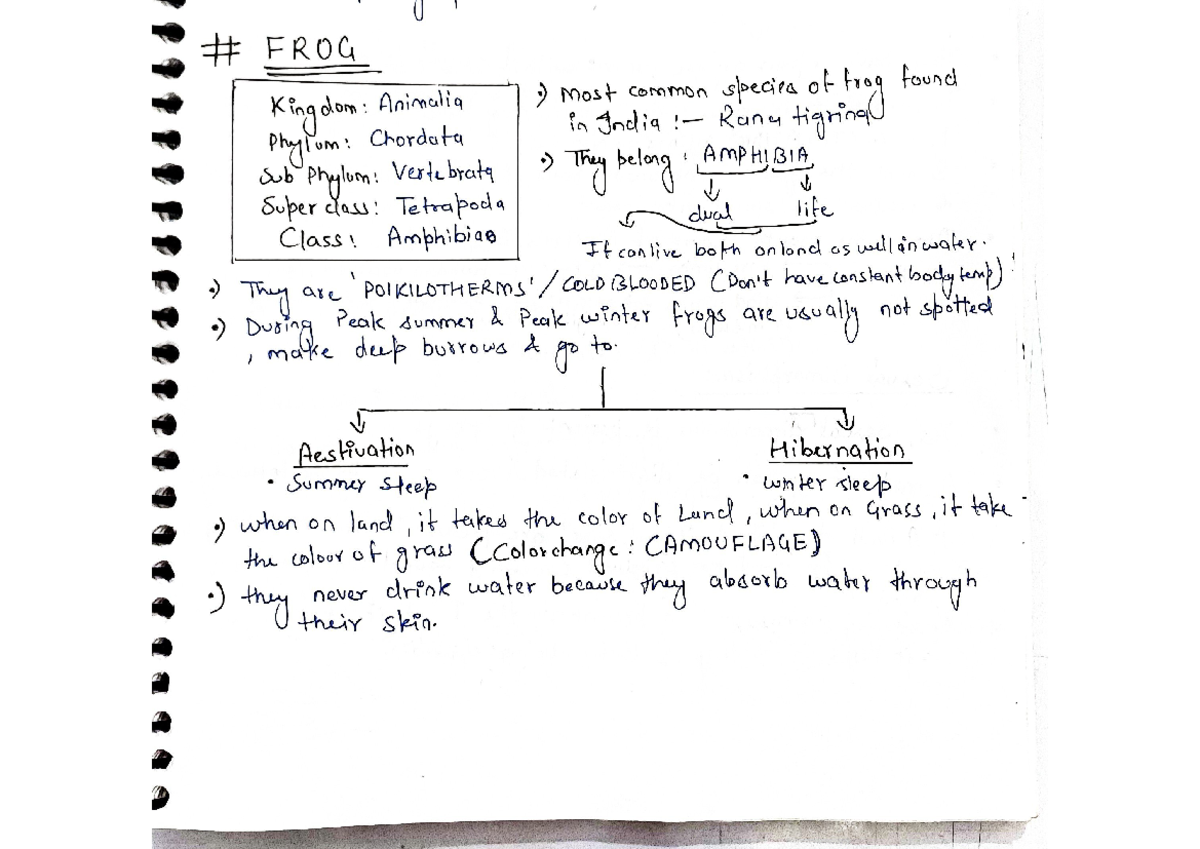 # FROG
Kingdom: Animalia
Phylum: Chordata
Sub Phylum: Vertebrata
Super class: Tetrapoda
Class: Amphibiae
•) Most common species of frog found
in India :— Rana tigrina
•) They belong : AMPHIBIA
dual life
It can live both on land as well in water.
•) They are 'POIKILOTHERMS' / COLD BLOODED (Don't have constant body temp)
•) During Peak summer & Peak winter frogs are usually not spotted
, make deep burrows & go to.
Aestivation Hibernation
• Summer sleep • winter sleep
•) when on land, it takes the color of Land, when on Grass, it take
the colour of grass (Color change : CAMOUFLAGE)
•) they never drink water because they absorb water through
their skin.